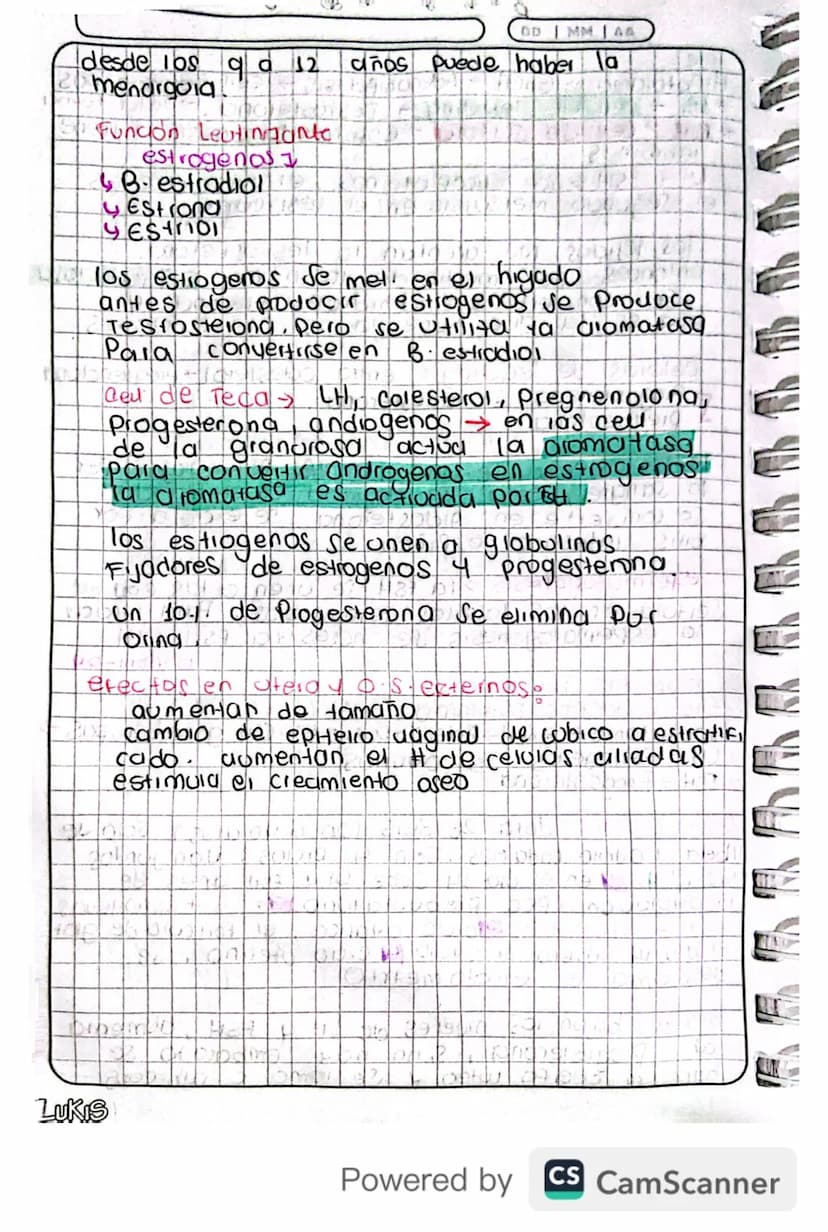 DD | MM | AA
desde los 9 a 12 años puede haber la
menarquia.
Función Leutinizante
estrogenos
B. estradiol
Estrona
Estriol
los estrogeros se met. en el higado
antes de producir estrogenos se Produce
Testosterona. Pero se utiliza la aromatasa
Para convertirse en B. estradiol
Celi de Teca → LH, colesterol, Pregnenolona,
Progesterona, androgenos → en las celi
de la granulosa activa la aromatasa
para convertir androgenos en estrogenos
la aromatasa es activada por FSH.
los estrogenos se unen a globulinas
Fijadores de estrogenos y progesterona.
Un 10.%. de Progesterona se elimina por
orina.
efectos en utero y O.S. externos:
aumentan de tamaño
cambio de epitelio vaginal de cubico a estratifi
cado. aumentan el # de celulas ciliadas
estimula el crecimiento oseo
LUKIS
Powered by CS CamScanner